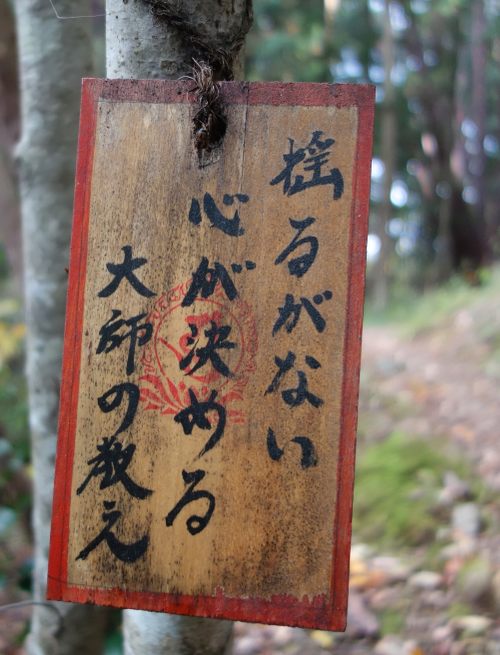 揺るがない
心が決める
大師の教え